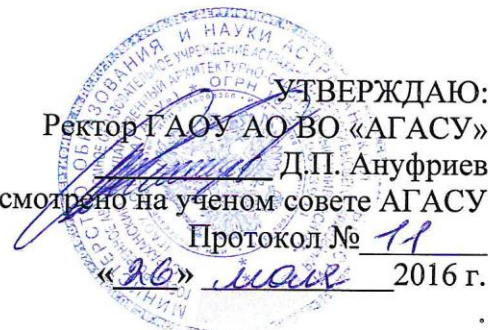 УТВЕРЖДАЮ:
Ректор ГАОУ АО ВО «АГАСУ»
Д.П. Ануфриев
смотрено на ученом совете АГАСУ
Протокол № 11
«26» мая 2016 г.